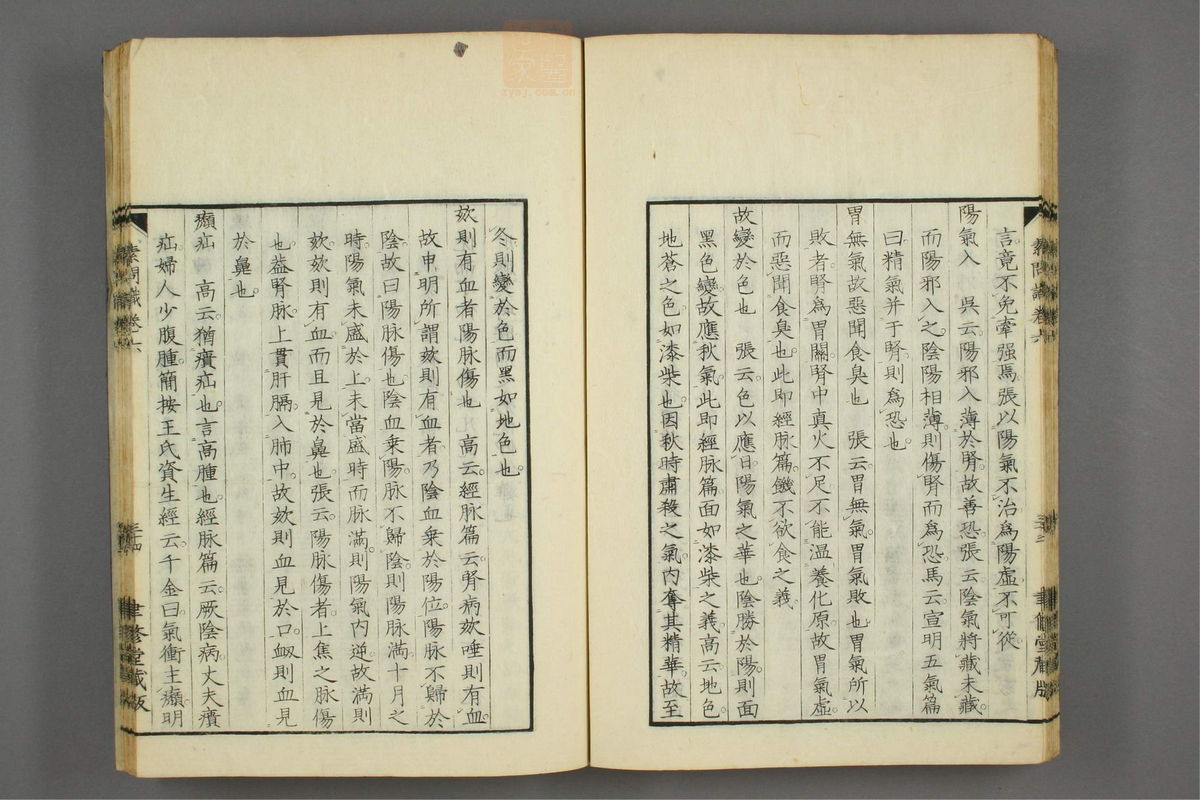 言竟不免牽强馬張以陽氣不治爲陽虛不可從
陽氣入　吳云陽邪入薄於腎故善恐張云陰氣將藏未藏
而陽邪入之陰陽相薄則傷腎而爲恐馬云宣明五氣篇
曰精氣并于腎則爲恐也
胃無氣故惡聞食臭也　張云胃無氣胃氣敗也胃氣所以
敗者腎爲胃關腎中真火不足不能溫養化原故胃氣虛
而惡聞食臭也此即經脉篇饑不欲食之義
故變於色也　張云色以應日陽氣之華也陰勝於陽則面
黑色變故應秋氣此即經脉篇面如漆柴之義高云地色
地蒼之色如漆柴也因秋時肅殺之氣內奪其精華故至
冬則變於色而黑如地色也
欬則有血者陽脉傷也　高云經脉篇云腎病欬唾則有血
故申明所謂欬則有血者乃陰血乗於陽位陽脉不歸於
陰故曰陽脉傷也陰血乗陽脉不歸陰則陽脉滿十月之
時陽氣未盛於上未當盛時而脉滿則陽氣內逆故滿則
欬欬則有血而且見於鼻也張云陽脉傷者上焦之脉傷
也葢腎脉上貫肝膈入肺中故欬則血見於口衂則血見
於鼻也
㿗疝　高云猶㿉疝也言高腫也經脉篇云厥陰病丈夫㿉
疝婦人少腹腫簡按王氏資生經云千金曰氣衝主㿗明
素問識卷六
三十四
聿修堂藏版